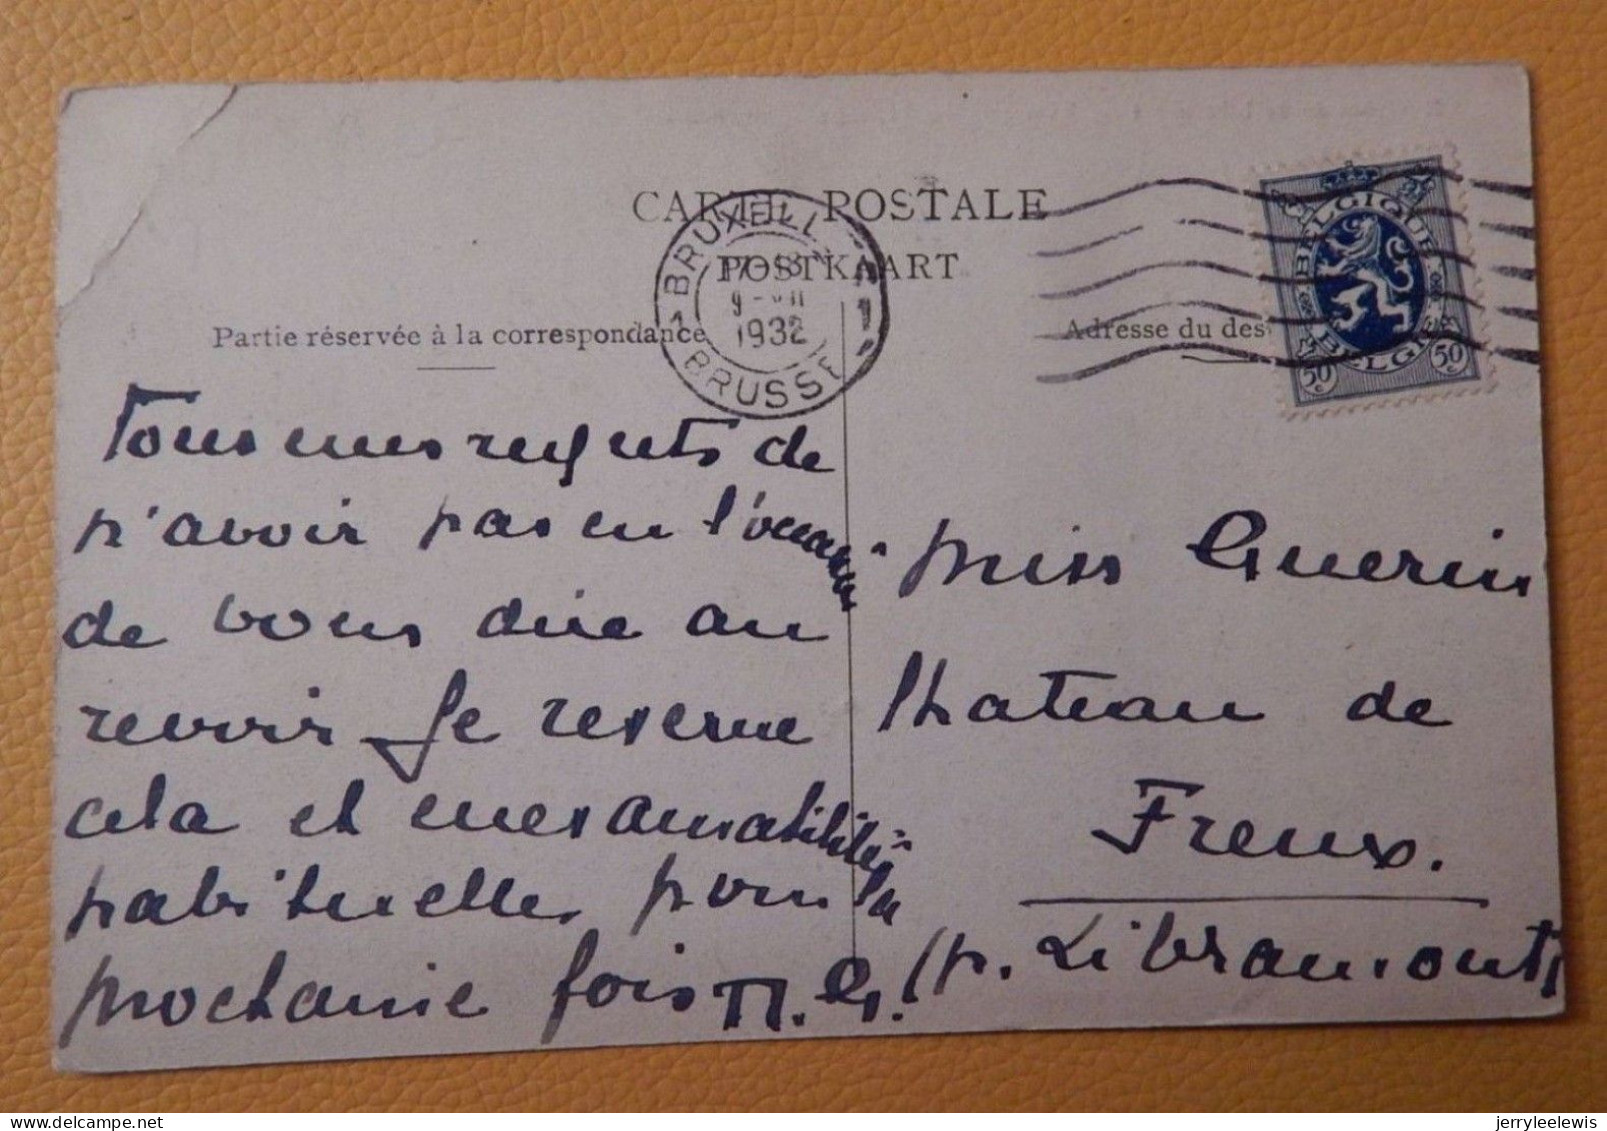 CARTE POSTALE
POSTKAART
BRUXELL
17-18
9-VII
1932
1 BRUSSE 1
BELGIQUE
BELGIË
50 c
50 c
Partie réservée à la correspondance
Adresse du des
Tous mes regrets de
n'avoir pas eu l'occasion
de vous dire au
revoir. Je reserve
cela et mes amabilités
habituelles pour la
prochaine fois M. G.
Miss Guerin
Chateau de
Freux.
(p. Libramont)
jerryleelewis